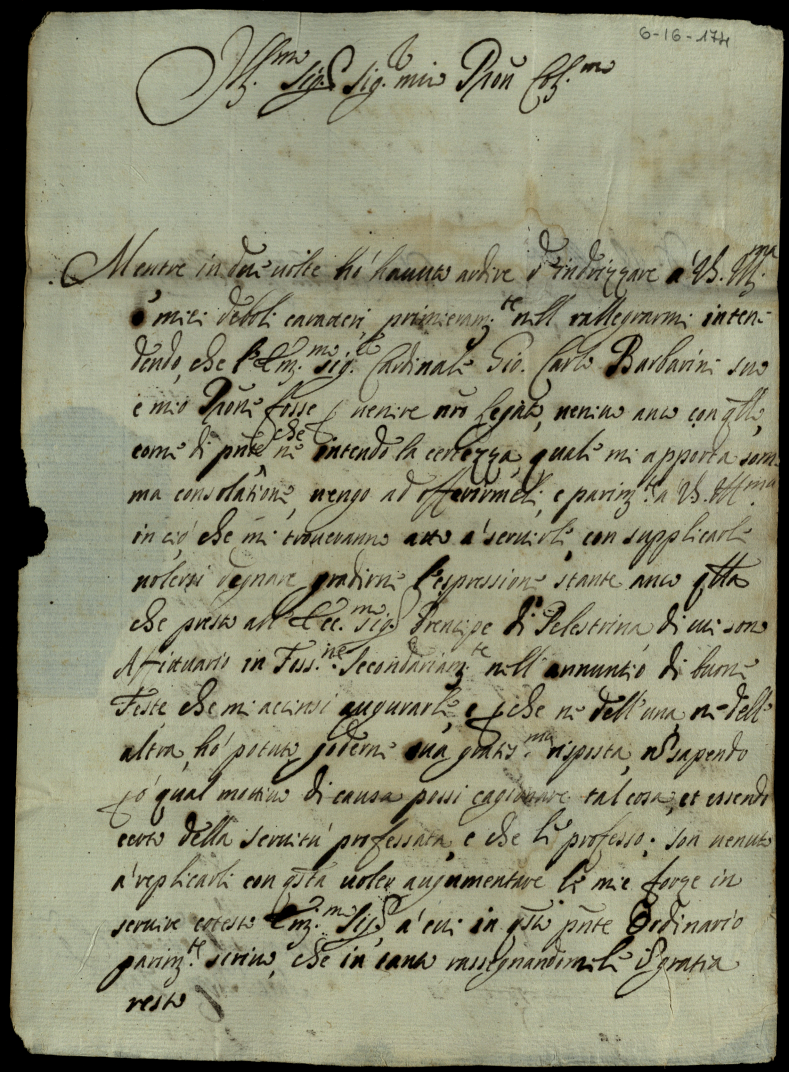 6-16-174
Ill.mo Sig.r Sig.r mio Pron Col.mo
Mentre in due uolte hó hauuto ardire d'indrizzare á VS. Ill.ma
i miei deboli caratteri primieram.te nell rallegrarmi inten-
dendo, che l'Em.mo Sig.r Cardinale Gio. Carlo Barbarini suo
e mio Prone fosse p uenire nro legato, uenivo anco con q̃llo,
come di pñte che ne intendo la certezza, quale mi apporta som-
ma consolatione, uengo ad offerirmeli, e parim.te a VS. Ill.ma
in ció che mi troueranno atto á seruirli, con supplicarle
uolersi degnare gradirne l'espressione stante anco q̃lla
che presto all'Ecc.mo Sig.r Prencipe di Pelestrina di cui son
Afittuario in Foss.ne Secondariam.te nell'annuntió di buone
Feste che mi accinsi augurarle, e p che ne dell'una, ne dell'
altra, hó potuto goderne sua gratis.ma risposta, nõ sapendo
pó qual motiuo di causa possi cagionare tal cosa, et essendo
certo della seruitú professata, e che le professo; son uenuto
á replicarli con q̃sta uoler augumentare le mie forze in
seruire cotesto Em.mo Sig.r á cui in q̃sto pñte Ordinario
parim.te scriuo, che in tanto rassegnandomele in gratia
resto